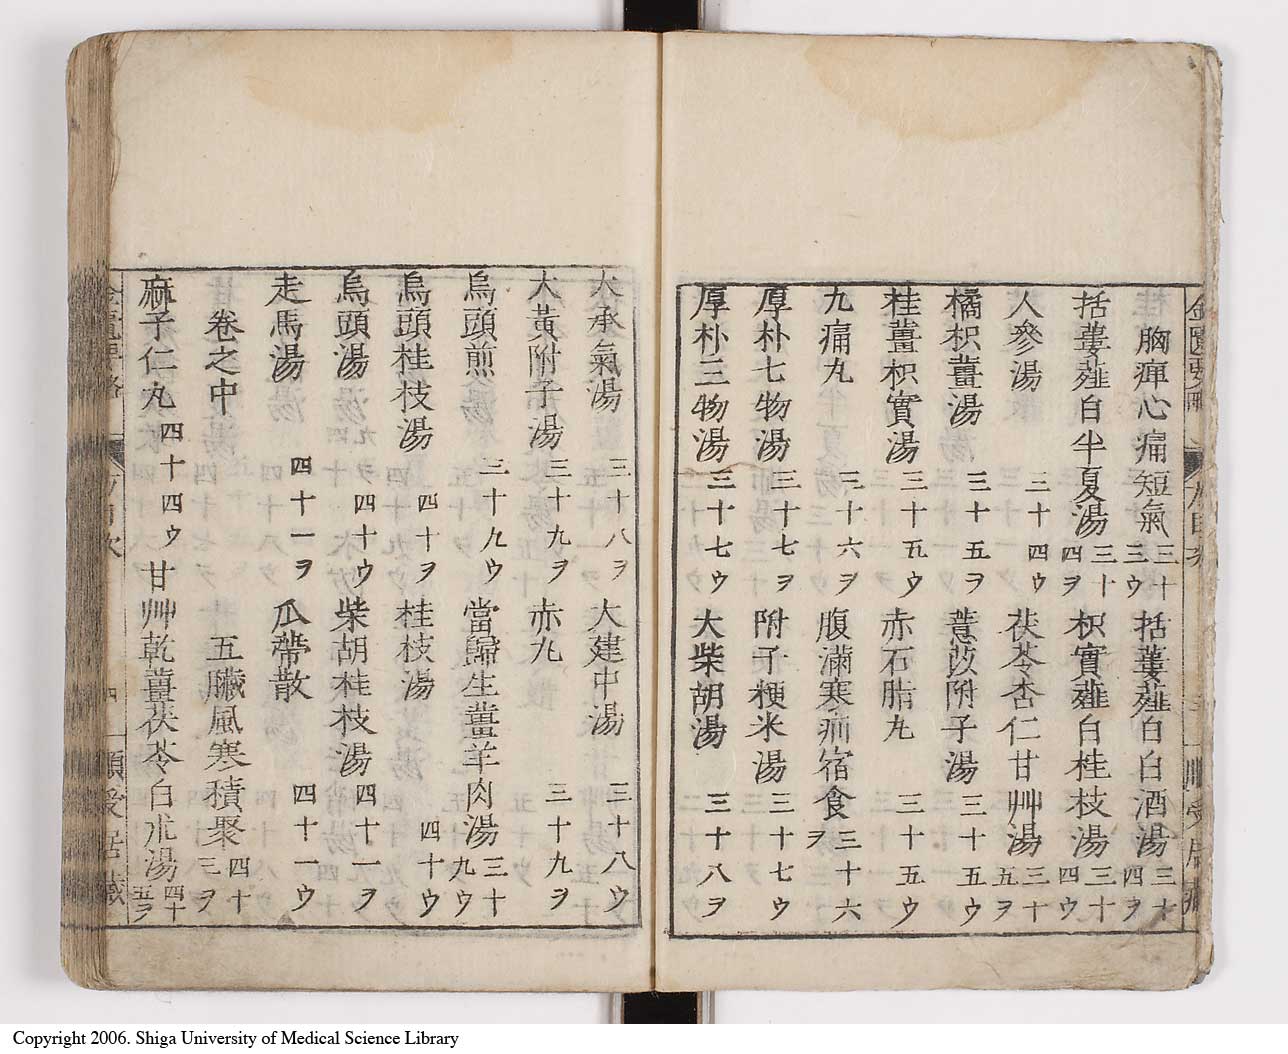 胸痺心痛短氣 三十三ウ 括蔞薤白白酒湯 三十四ウ
括蔞薤白半夏湯 三十四ヲ 枳實薤白桂枝湯 三十四ウ
人參湯 三十四ウ 茯苓杏仁甘艸湯 三十五ヲ
橘枳薑湯 三十五ヲ 薏苡附子湯 三十五ウ
桂薑枳實湯 三十五ウ 赤石脂丸 三十五ウ
九痛丸 三十六ヲ 腹滿寒疝宿食 三十六ヲ
厚朴七物湯 三十七ヲ 附子粳米湯 三十七ウ
厚朴三物湯 三十七ウ 大柴胡湯 三十八ヲ
大承氣湯 三十八ヲ 大建中湯 三十八ウ
大黃附子湯 三十九ヲ 赤丸 三十九ヲ
烏頭煎 三十九ウ 當歸生薑羊肉湯 三十九ウ
烏頭桂枝湯 四十ヲ 桂枝湯 四十ウ
烏頭湯 四十ウ 柴胡桂枝湯 四十一ヲ
走馬湯 四十一ヲ 瓜蒂散 四十一ウ
卷之中 五臟風寒積聚 四十三ヲ
麻子仁丸 四十四ウ 甘艸乾薑茯苓白朮湯 四十五ヲ
Copyright 2006. Shiga University of Medical Science Library